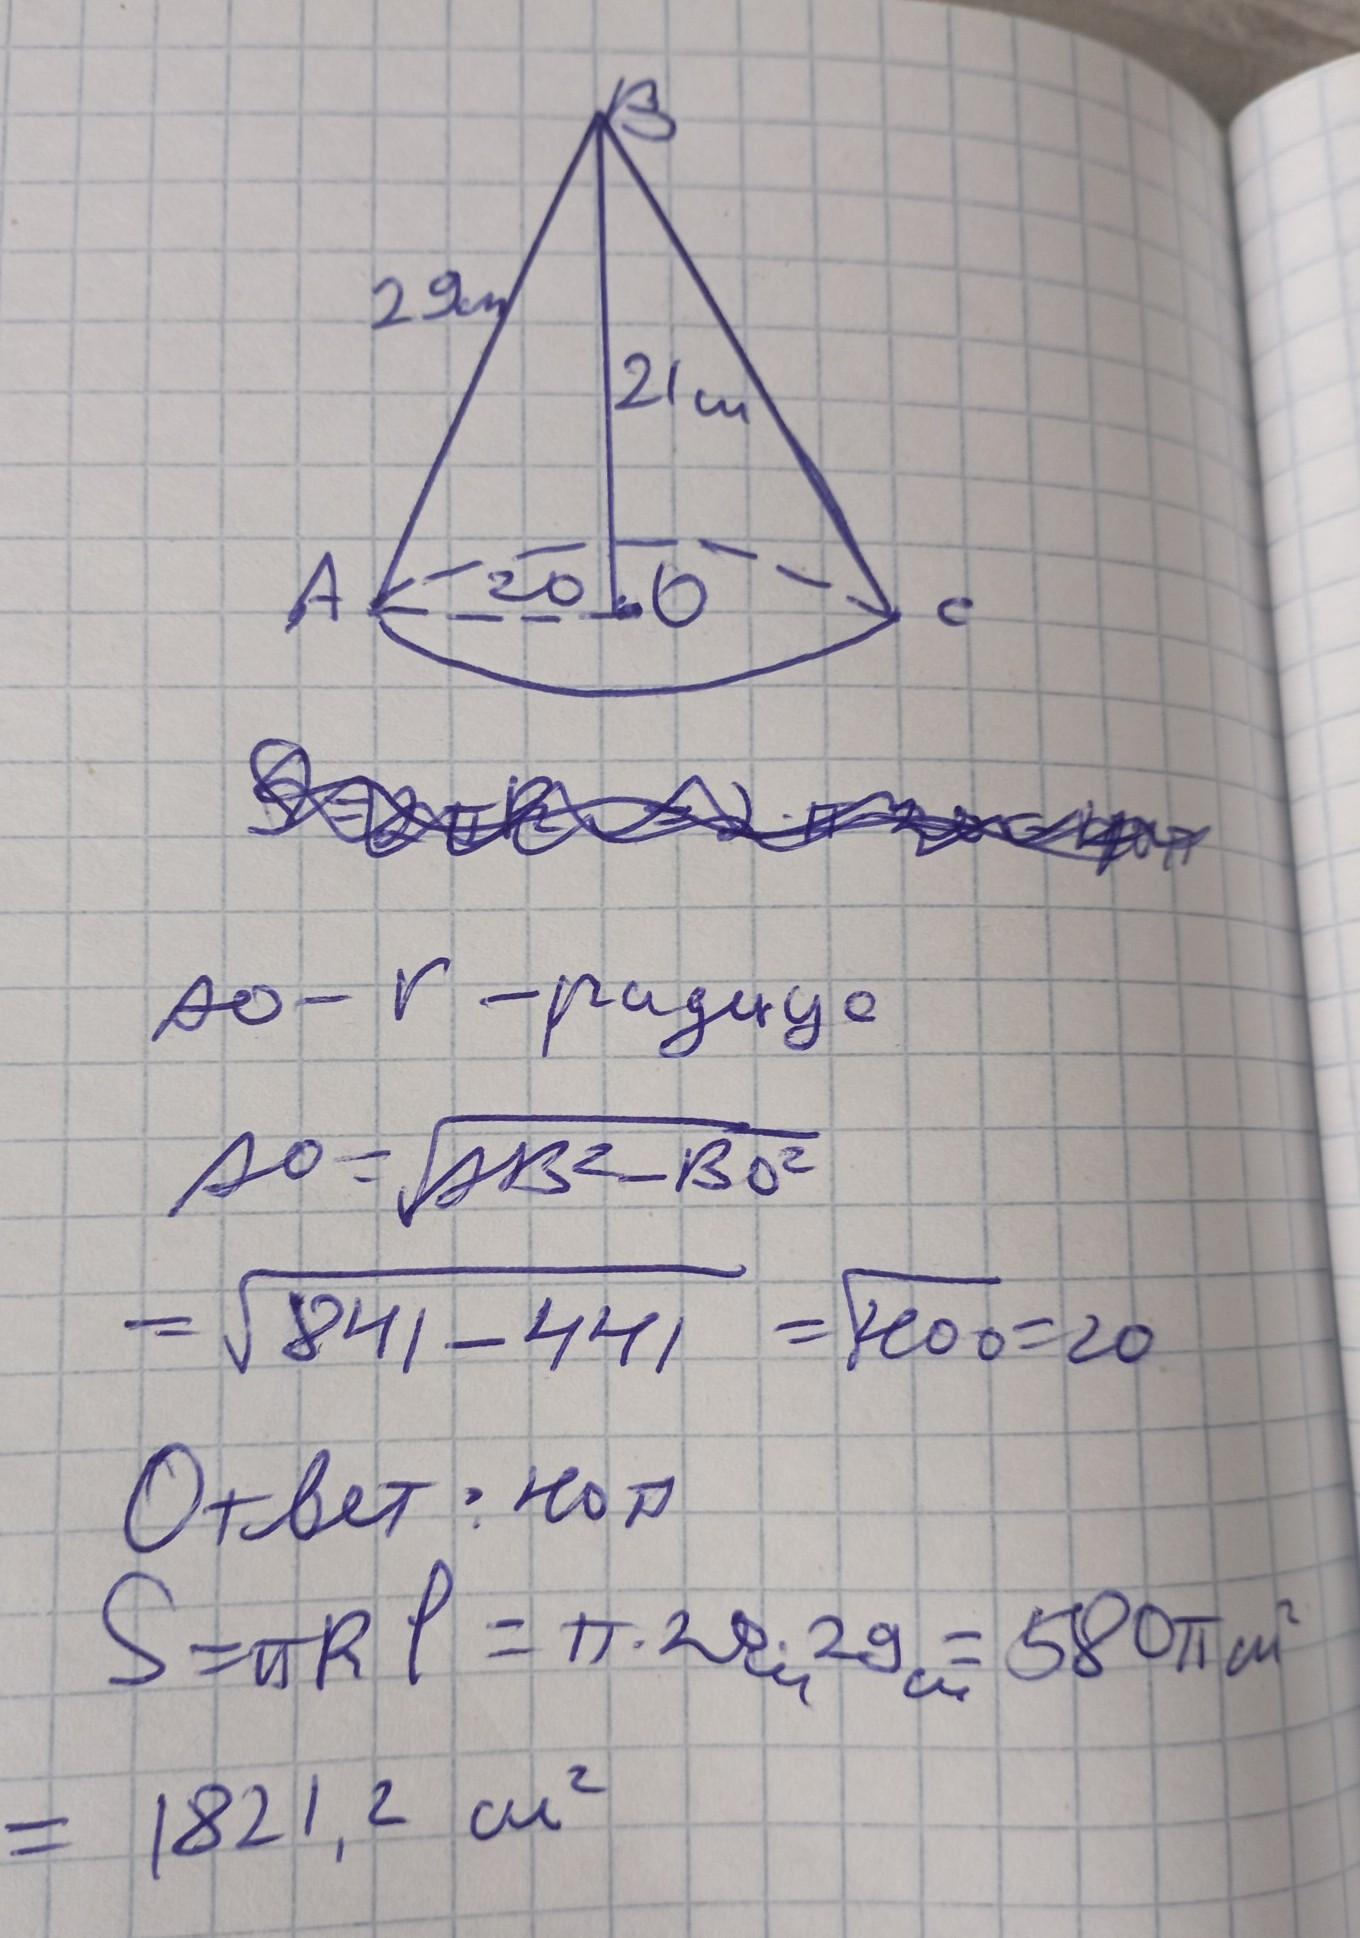 B
29см
21см
A 20 O C
AO - r - радиус
AO = √AB² - BO²
= √841 - 441 = √400 = 20
Ответ: 40π
S = πRl = π · 20см · 29см = 580π см²
= 1821,2 см²